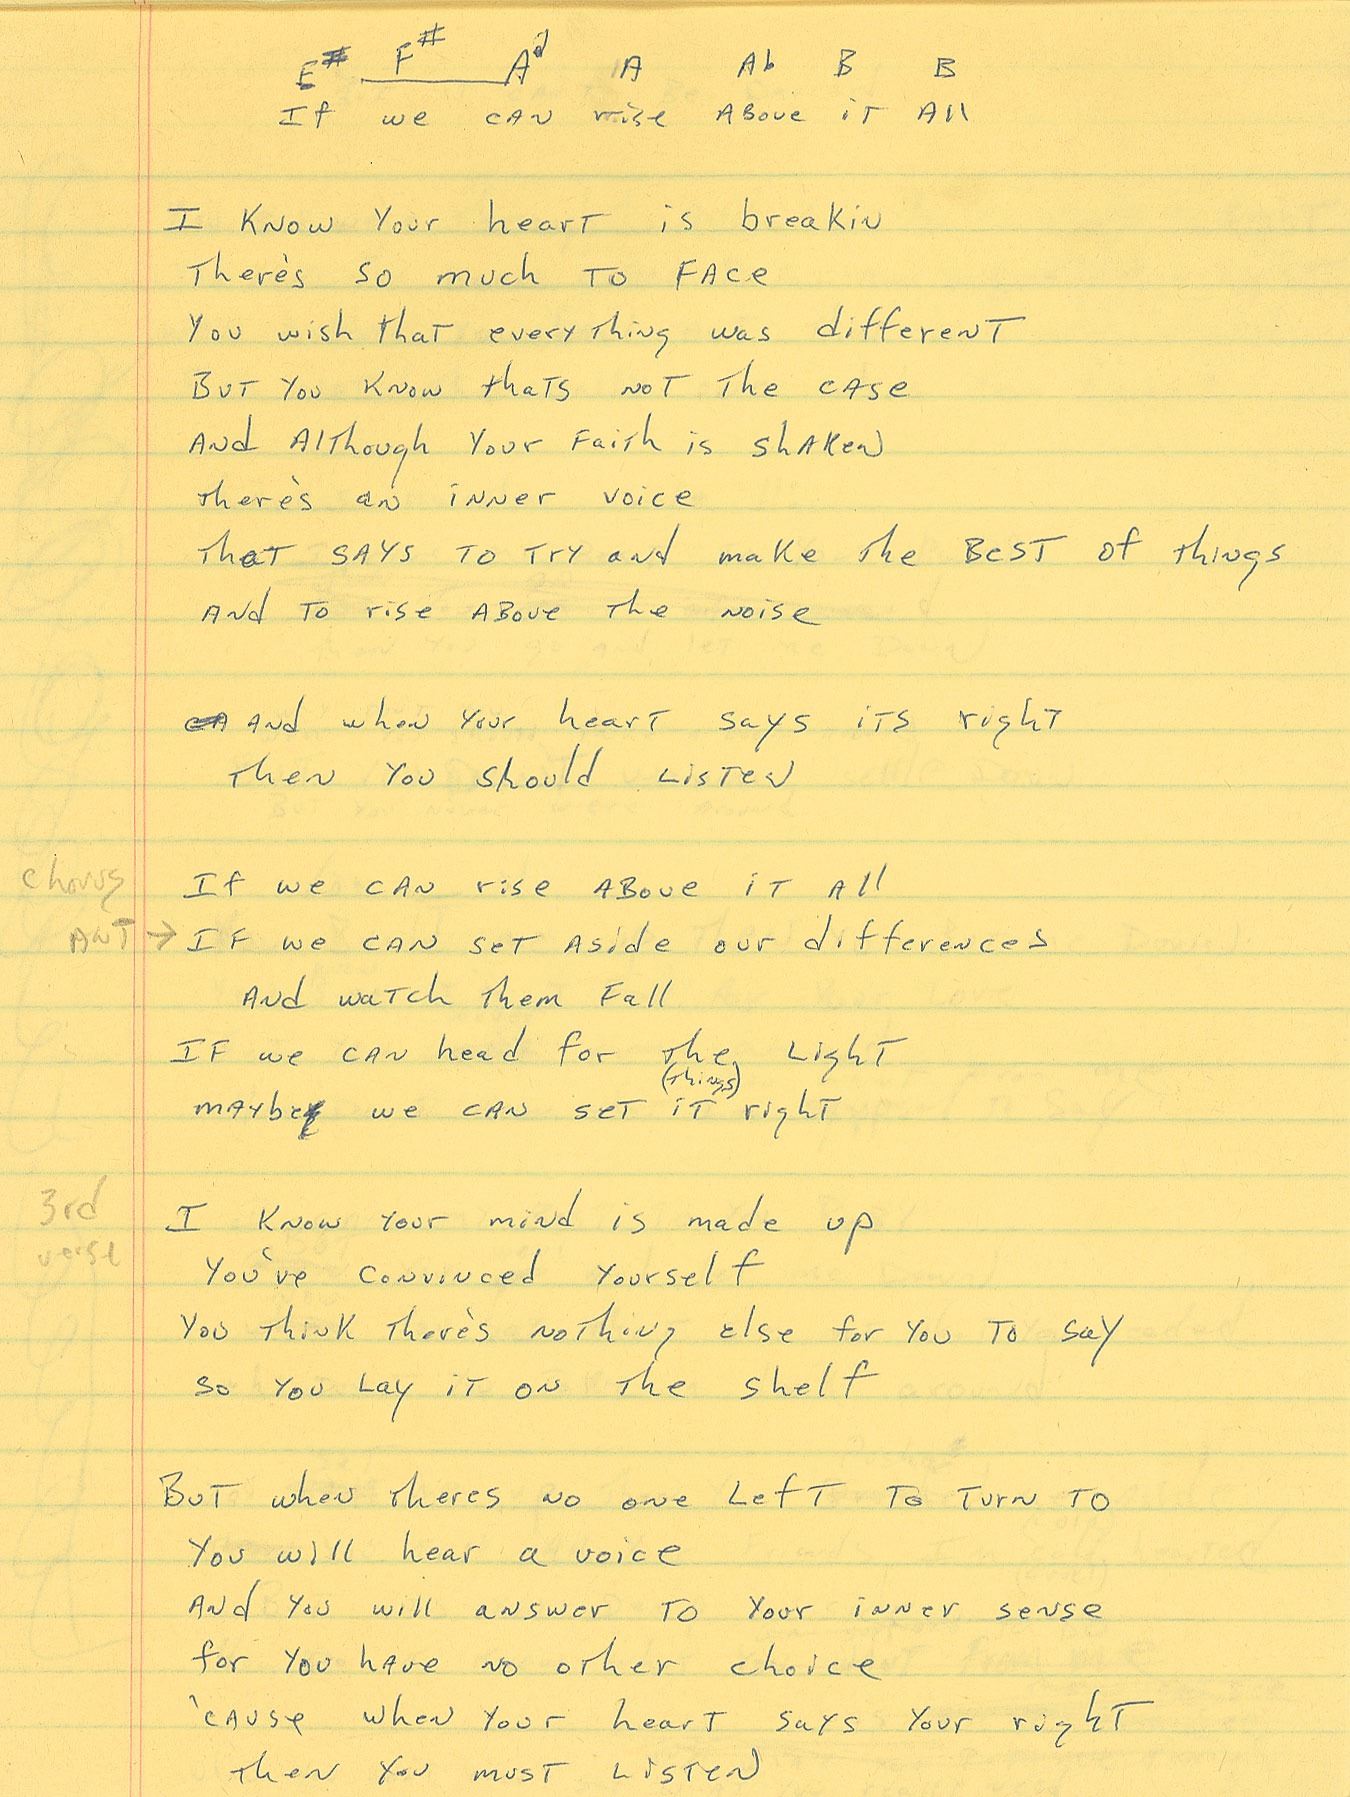 E# F# A A Ab B B
If we can rise above it all
I know your heart is breakin
There's so much to face
You wish that everything was different
But you know thats not the case
And although your faith is shaken
there's an inner voice
that says to try and make the best of things
and to rise above the noise
And when your heart says its right
then you should listen
chorus
If we can rise above it all
If we can set aside our differences
And watch them fall
If we can head for the light
(things)
maybe we can set it right
3rd
verse
I know your mind is made up
You've convinced yourself
You think there's nothing else for you to say
so you lay it on the shelf
But when theres no one left to turn to
You will hear a voice
And you will answer to your inner sense
for you have no other choice
'cause when your heart says your right
then you must listen